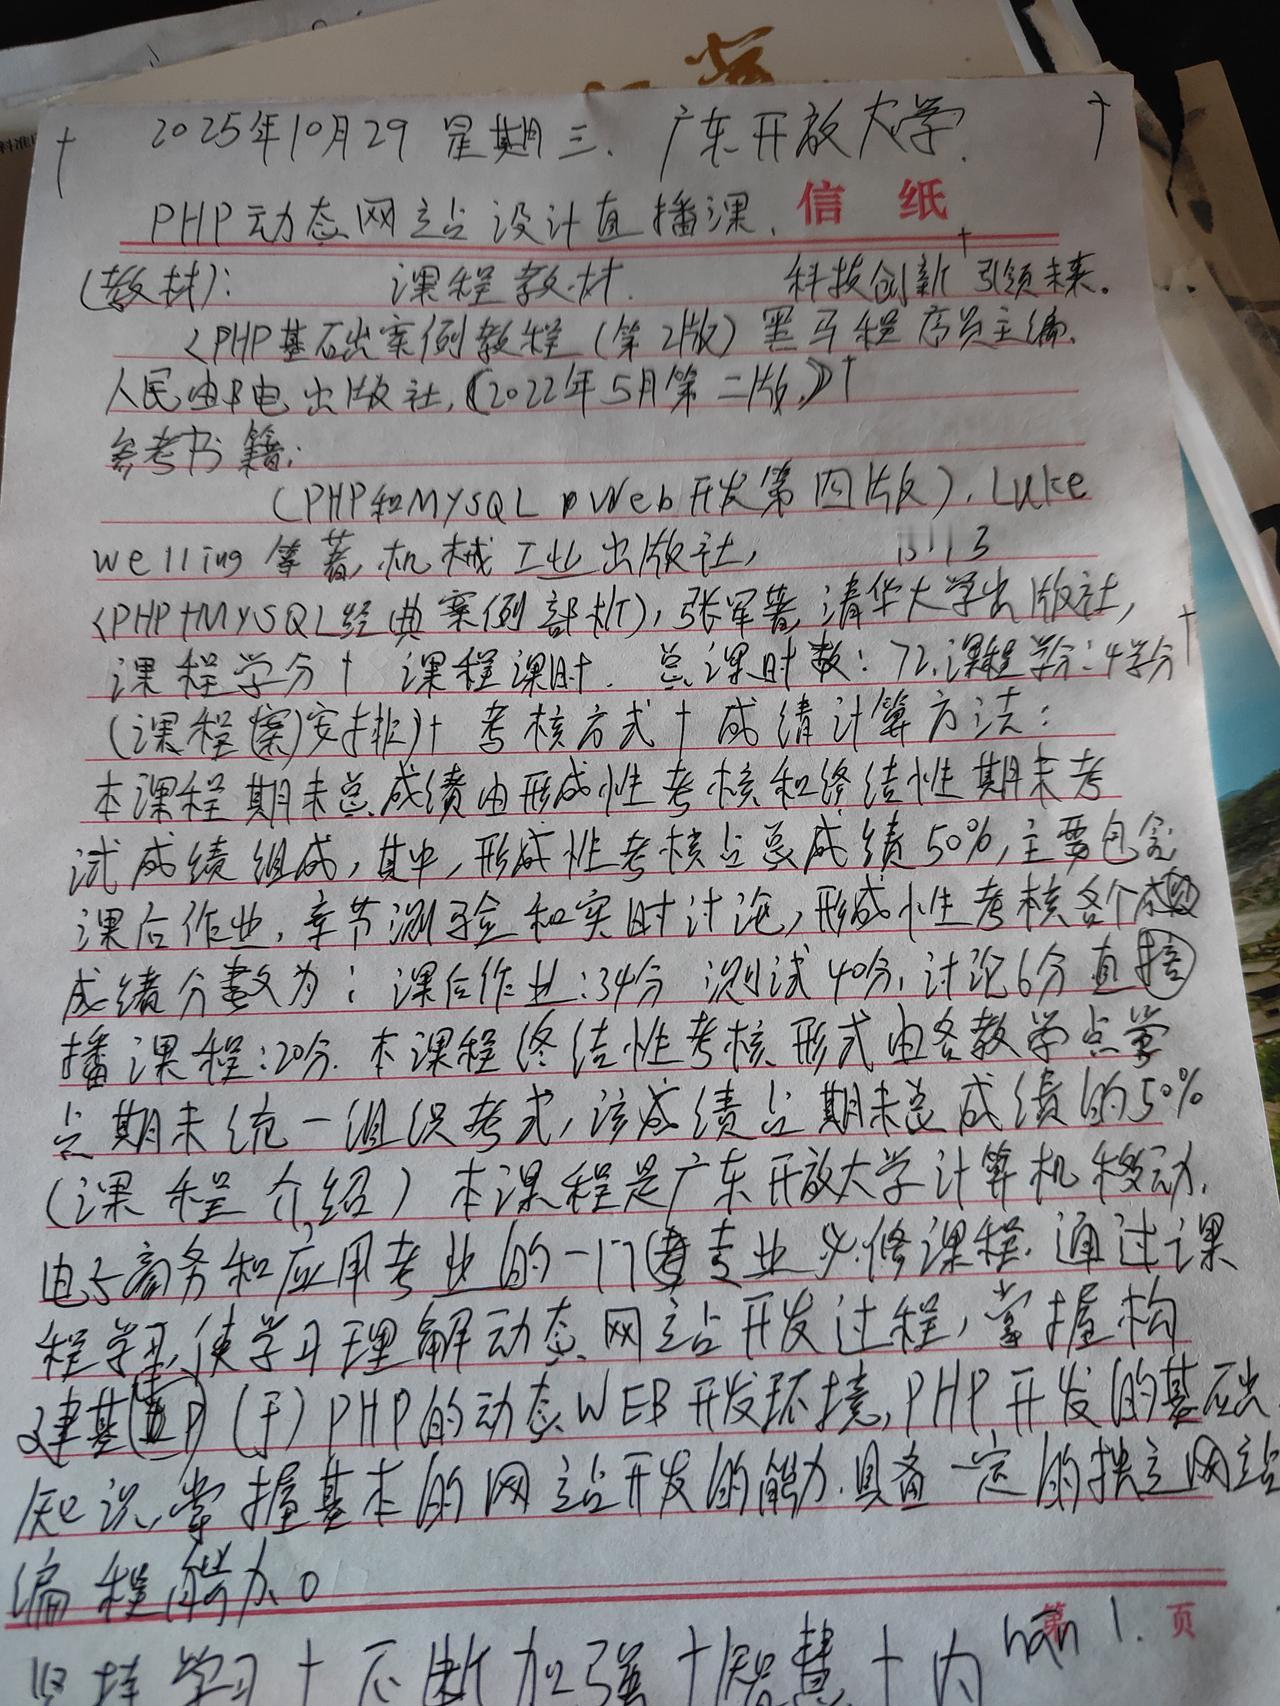 2025年10月29 星期三. 广东开放大学.
PHP动态网站设计直播课. 信 纸
(教材): 课程教材. 科技创新+引领未来。
〈PHP基础案例教程(第2版)黑马程序员主编.
人民邮电出版社,《2022年5月第二版,》+
参考书籍:
(PHP和MYSQL Web开发第四版), Luke
welling 等著,机械工业出版社,
〈PHP+MYSQL经典案例部析), 张军著,清华大学出版社,
课程学分+ 课程课时. 总课时数:72,课程学分:4学分
(课程(案)安排)+ 考核方式+成绩计算方法:
本课程期末总成绩由形成性考核和终结性期末考
试成绩组成,其中,形成性考核占总成绩50%,主要包含
课后作业,章节测验和实时讨论,形成性考核各个成
成绩分数为:课后作业:34分 测试40分,讨论6分直
播课程:20分. 本课程终结性考核形式由各教学点学
点期末统一组织考式,该成绩占期末总成绩的50%
(课程介绍) 本课程是广东开放大学计算机移动,
电子商务和应用专业的一门专业必修课程. 通过课
程学习,使学习理解动态网站开发过程,掌握构
建基(于)PHP的动态WEB开发环境,PHP开发的基础
知识,掌握基本的网站开发的能力.具备一定的独立网站
编程能力。
第 1. 页
坚持学习+不断加强+智慧+内han